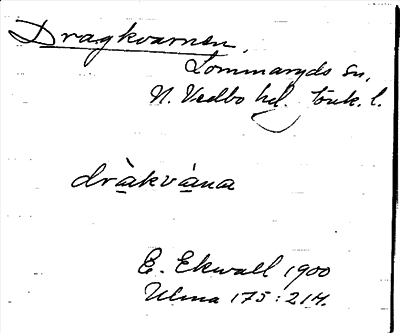 Dragkvarnen,
Lommaryds sn,
N. Vedbo hd. Jönk. l.
dràkvàna
E. Ekwall 1900
Ulma 175:214.